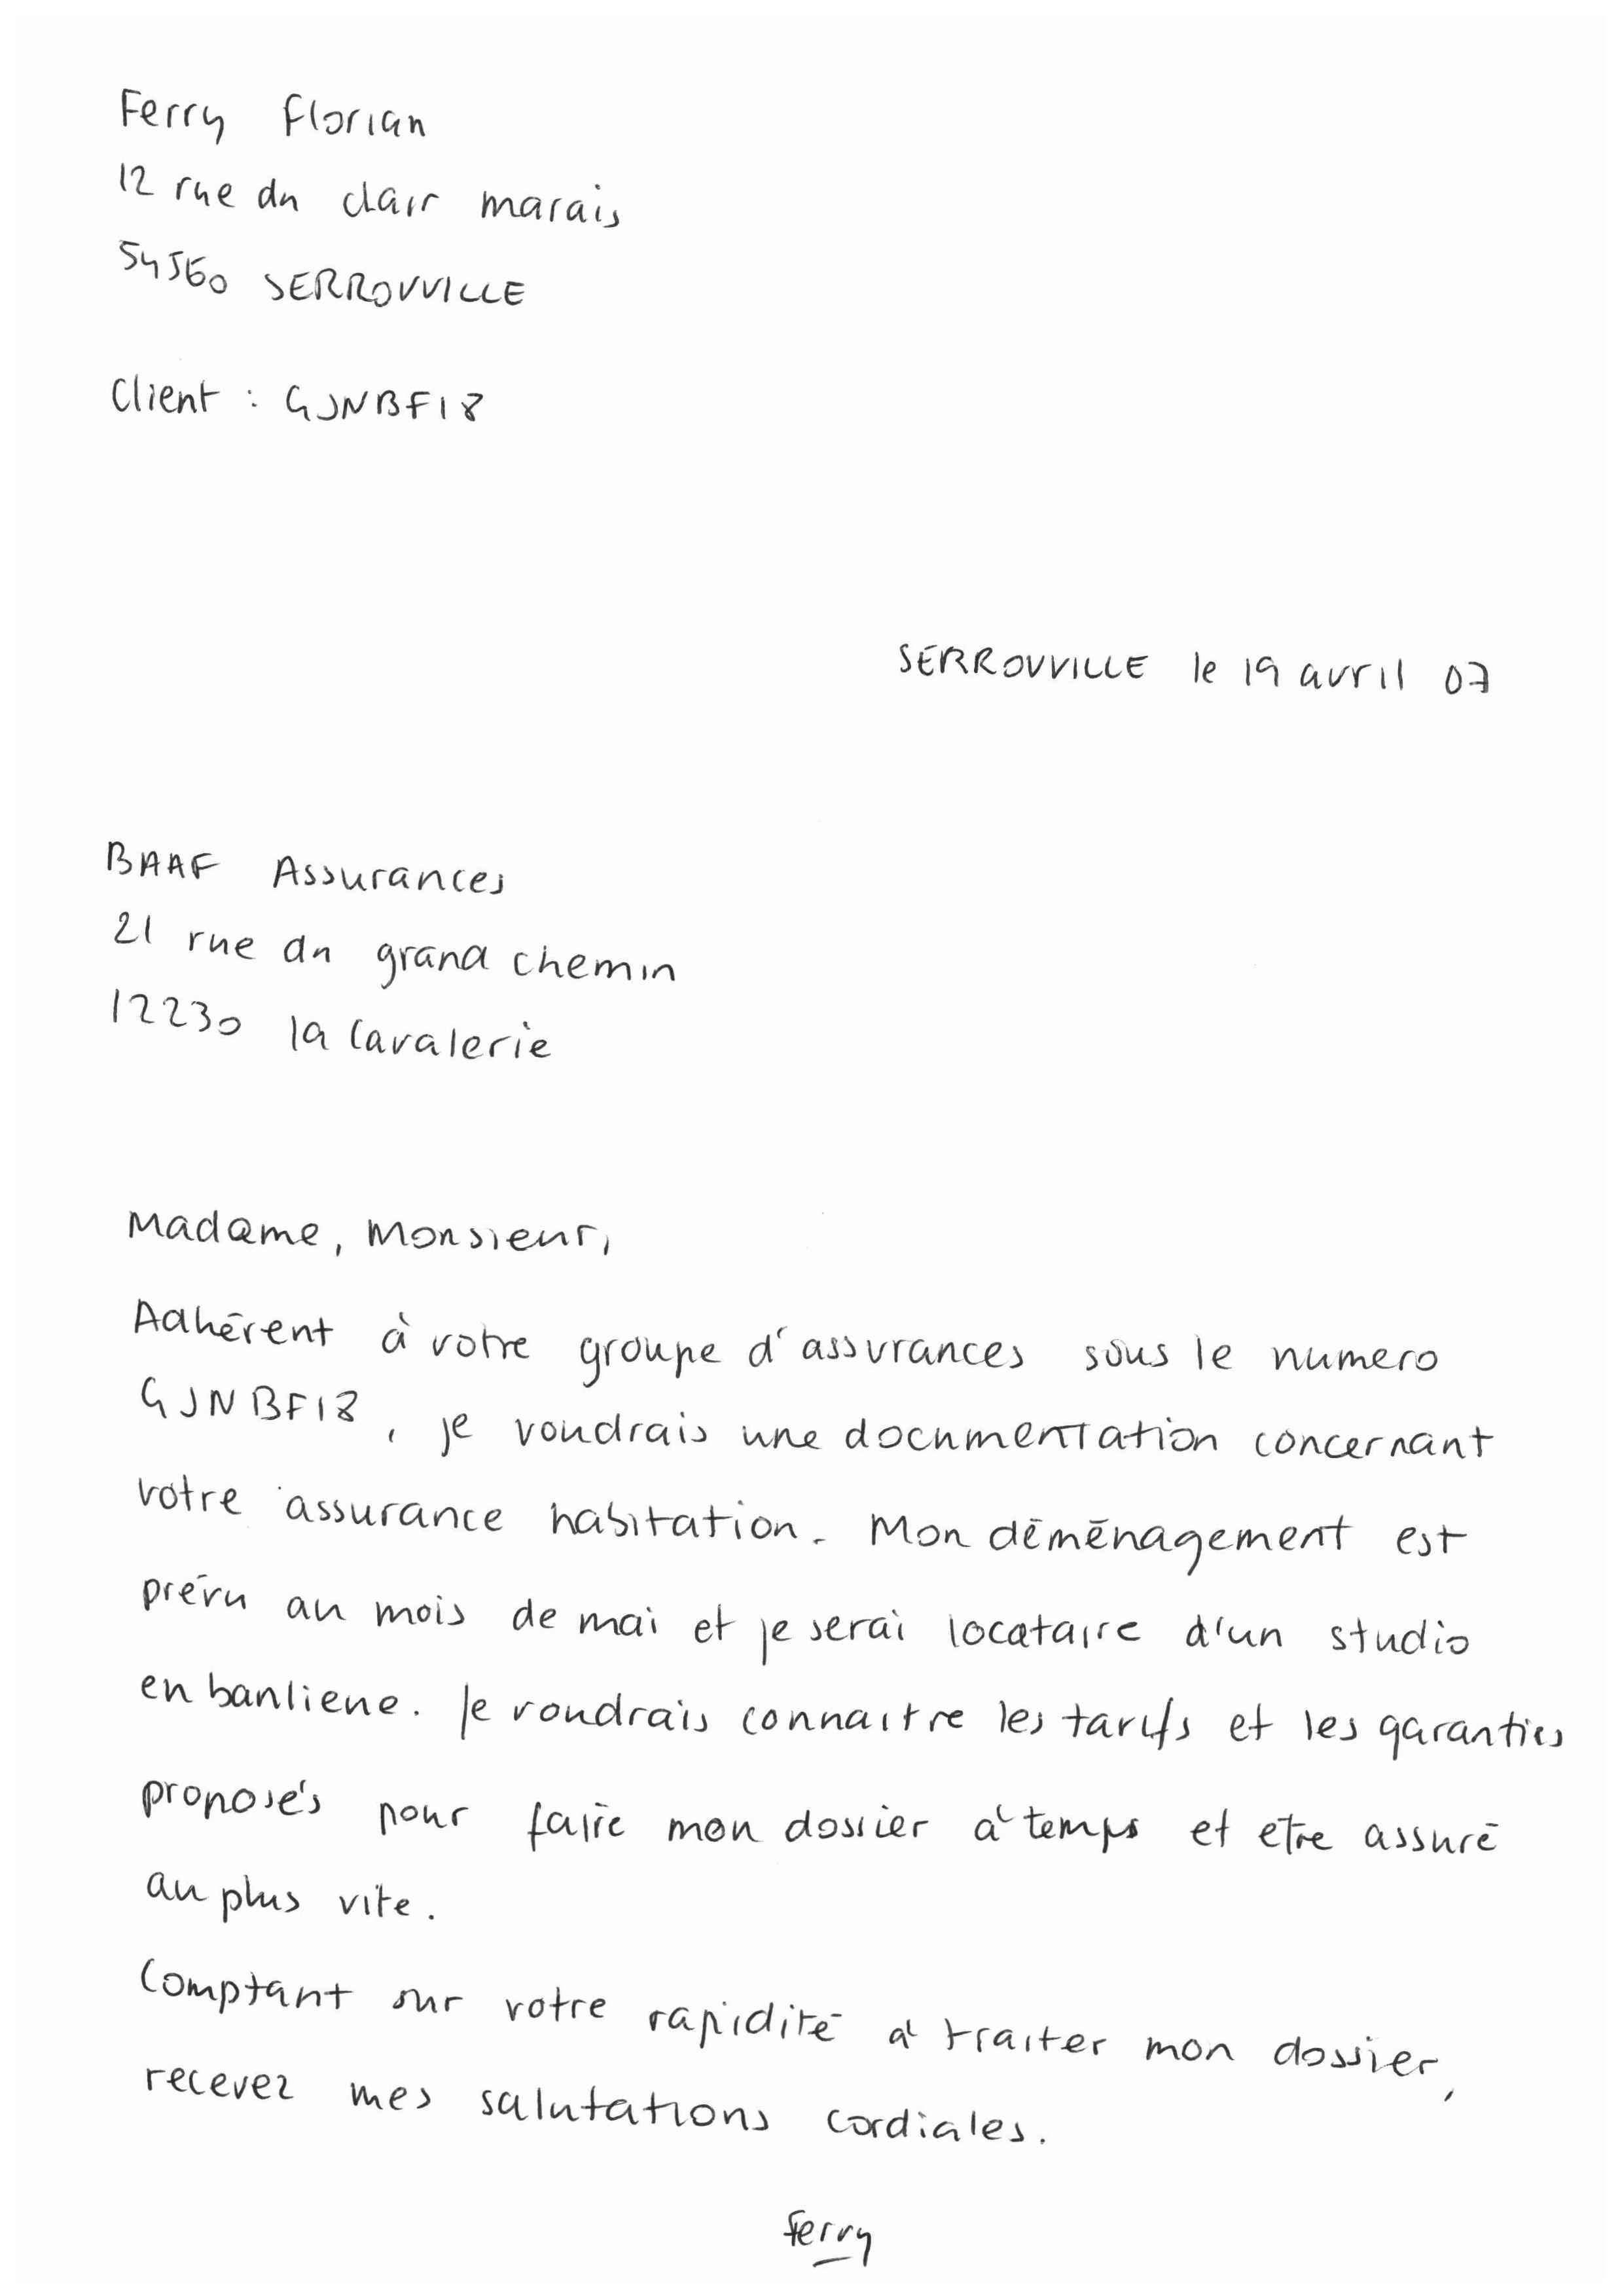 Ferry Florian
12 rue du clair marais
54560 SERROUVILLE
Client : GJNBF18
SERROUVILLE le 19 avril 07
BAAF Assurances
21 rue du grand chemin
12230 la Cavalerie
Madame, Monsieur,
Adhérent à votre groupe d'assurances sous le numero
GJNBF18, je voudrais une documentation concernant
votre assurance habitation. Mon déménagement est
prévu au mois de mai et je serai locataire d'un studio
en banlieue. Je voudrais connaitre les tarifs et les garanties
proposés pour faire mon dossier à temps et etre assuré
au plus vite.
Comptant sur votre rapidité à traiter mon dossier,
recevez mes salutations cordiales.
Ferry